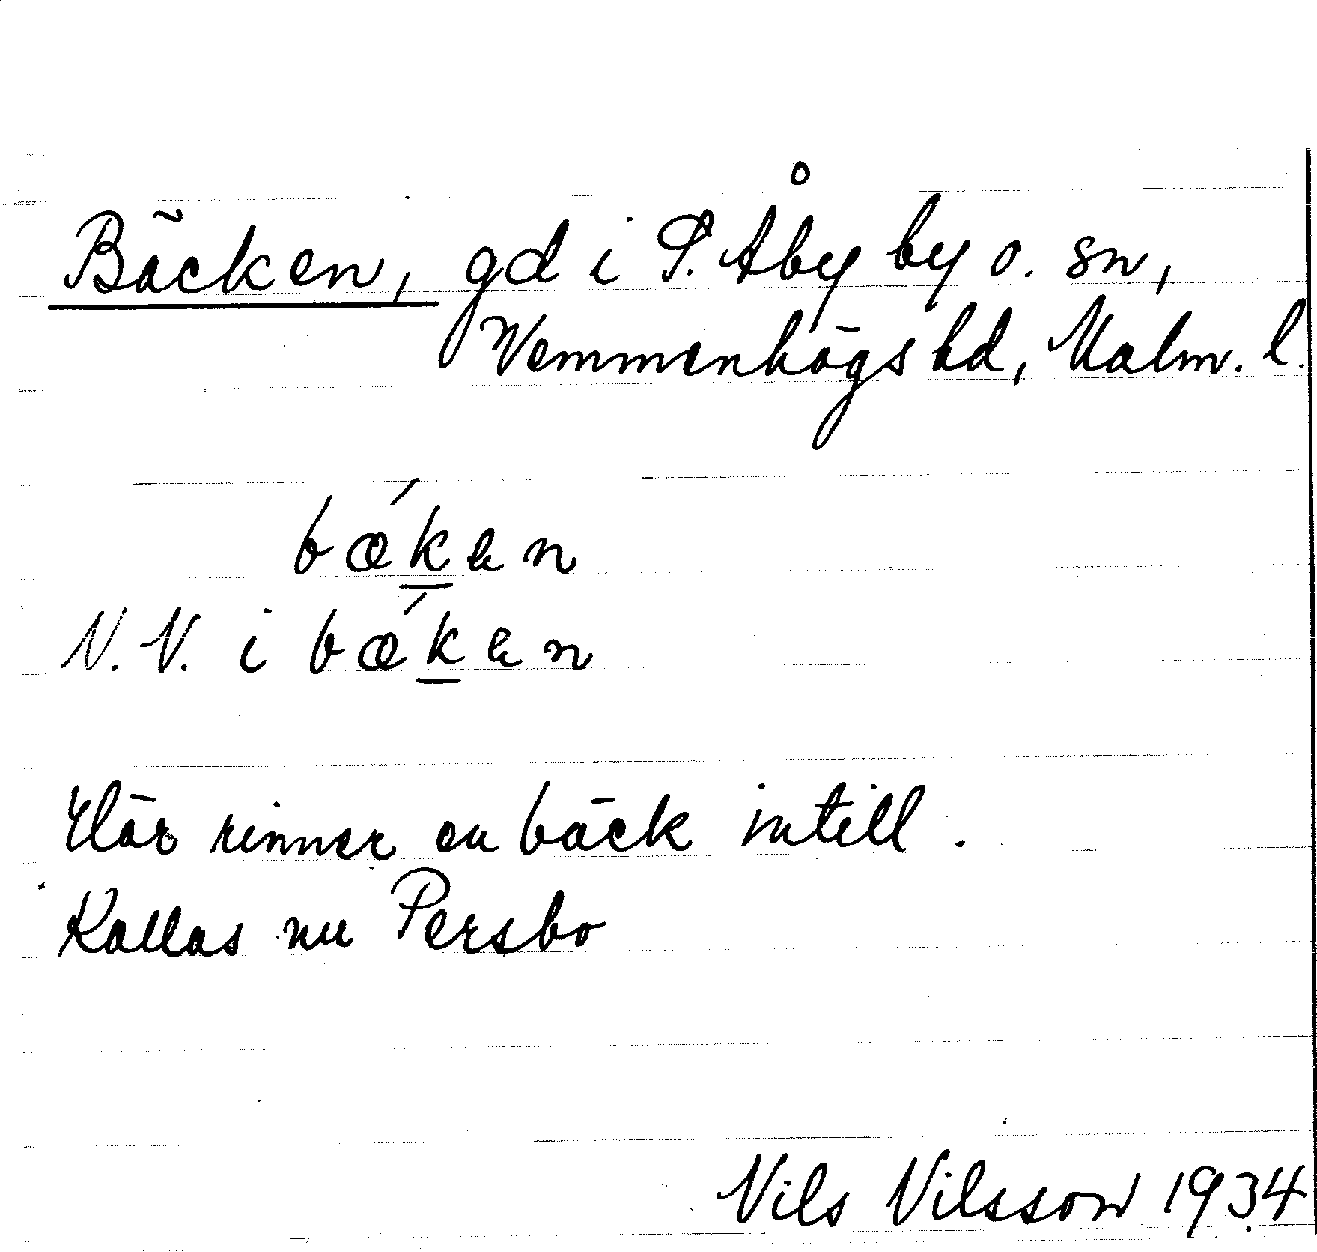 Bäcken, gd i S. Åby by o. sn,
Vemmenhögs hd, Malm. l.
bǽkən
N.N. i bǽkən
Här rinner en bäck intill.
Kallas nu Persbo
Nils Nilsson 1934